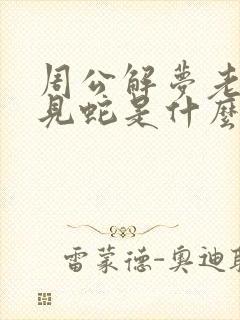 周公解夢老
見蛇是什麼
雷蒙德-奧迪